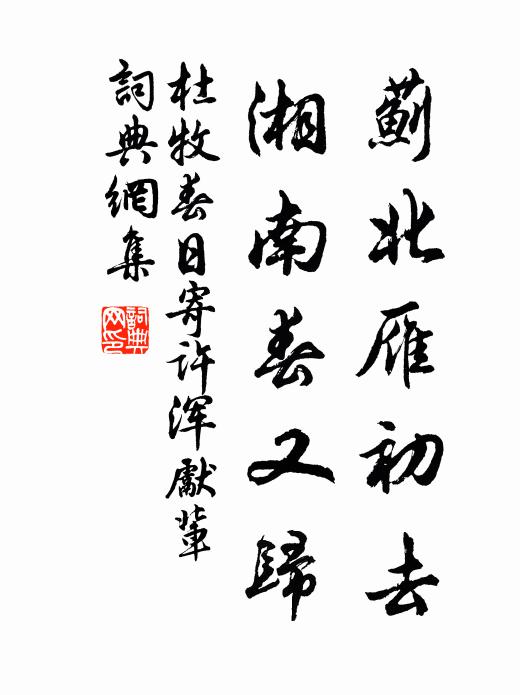 薊北雁初去
湘南春又歸
杜牧春日寄许渾獻輩
詞典網集
詞典网印